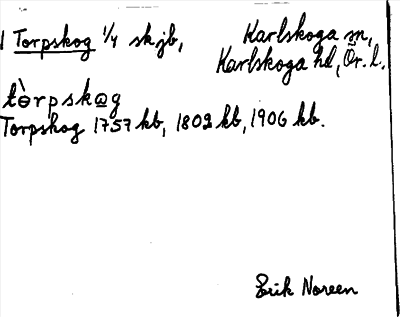 1 Torpskog 1/4 sk jb, Karlskoga sn,
Karlskoga hd, Ör. l.
tòrpskɷg
Torpskog 1757 kb, 1802 kb, 1906 kb.
Erik Noreen